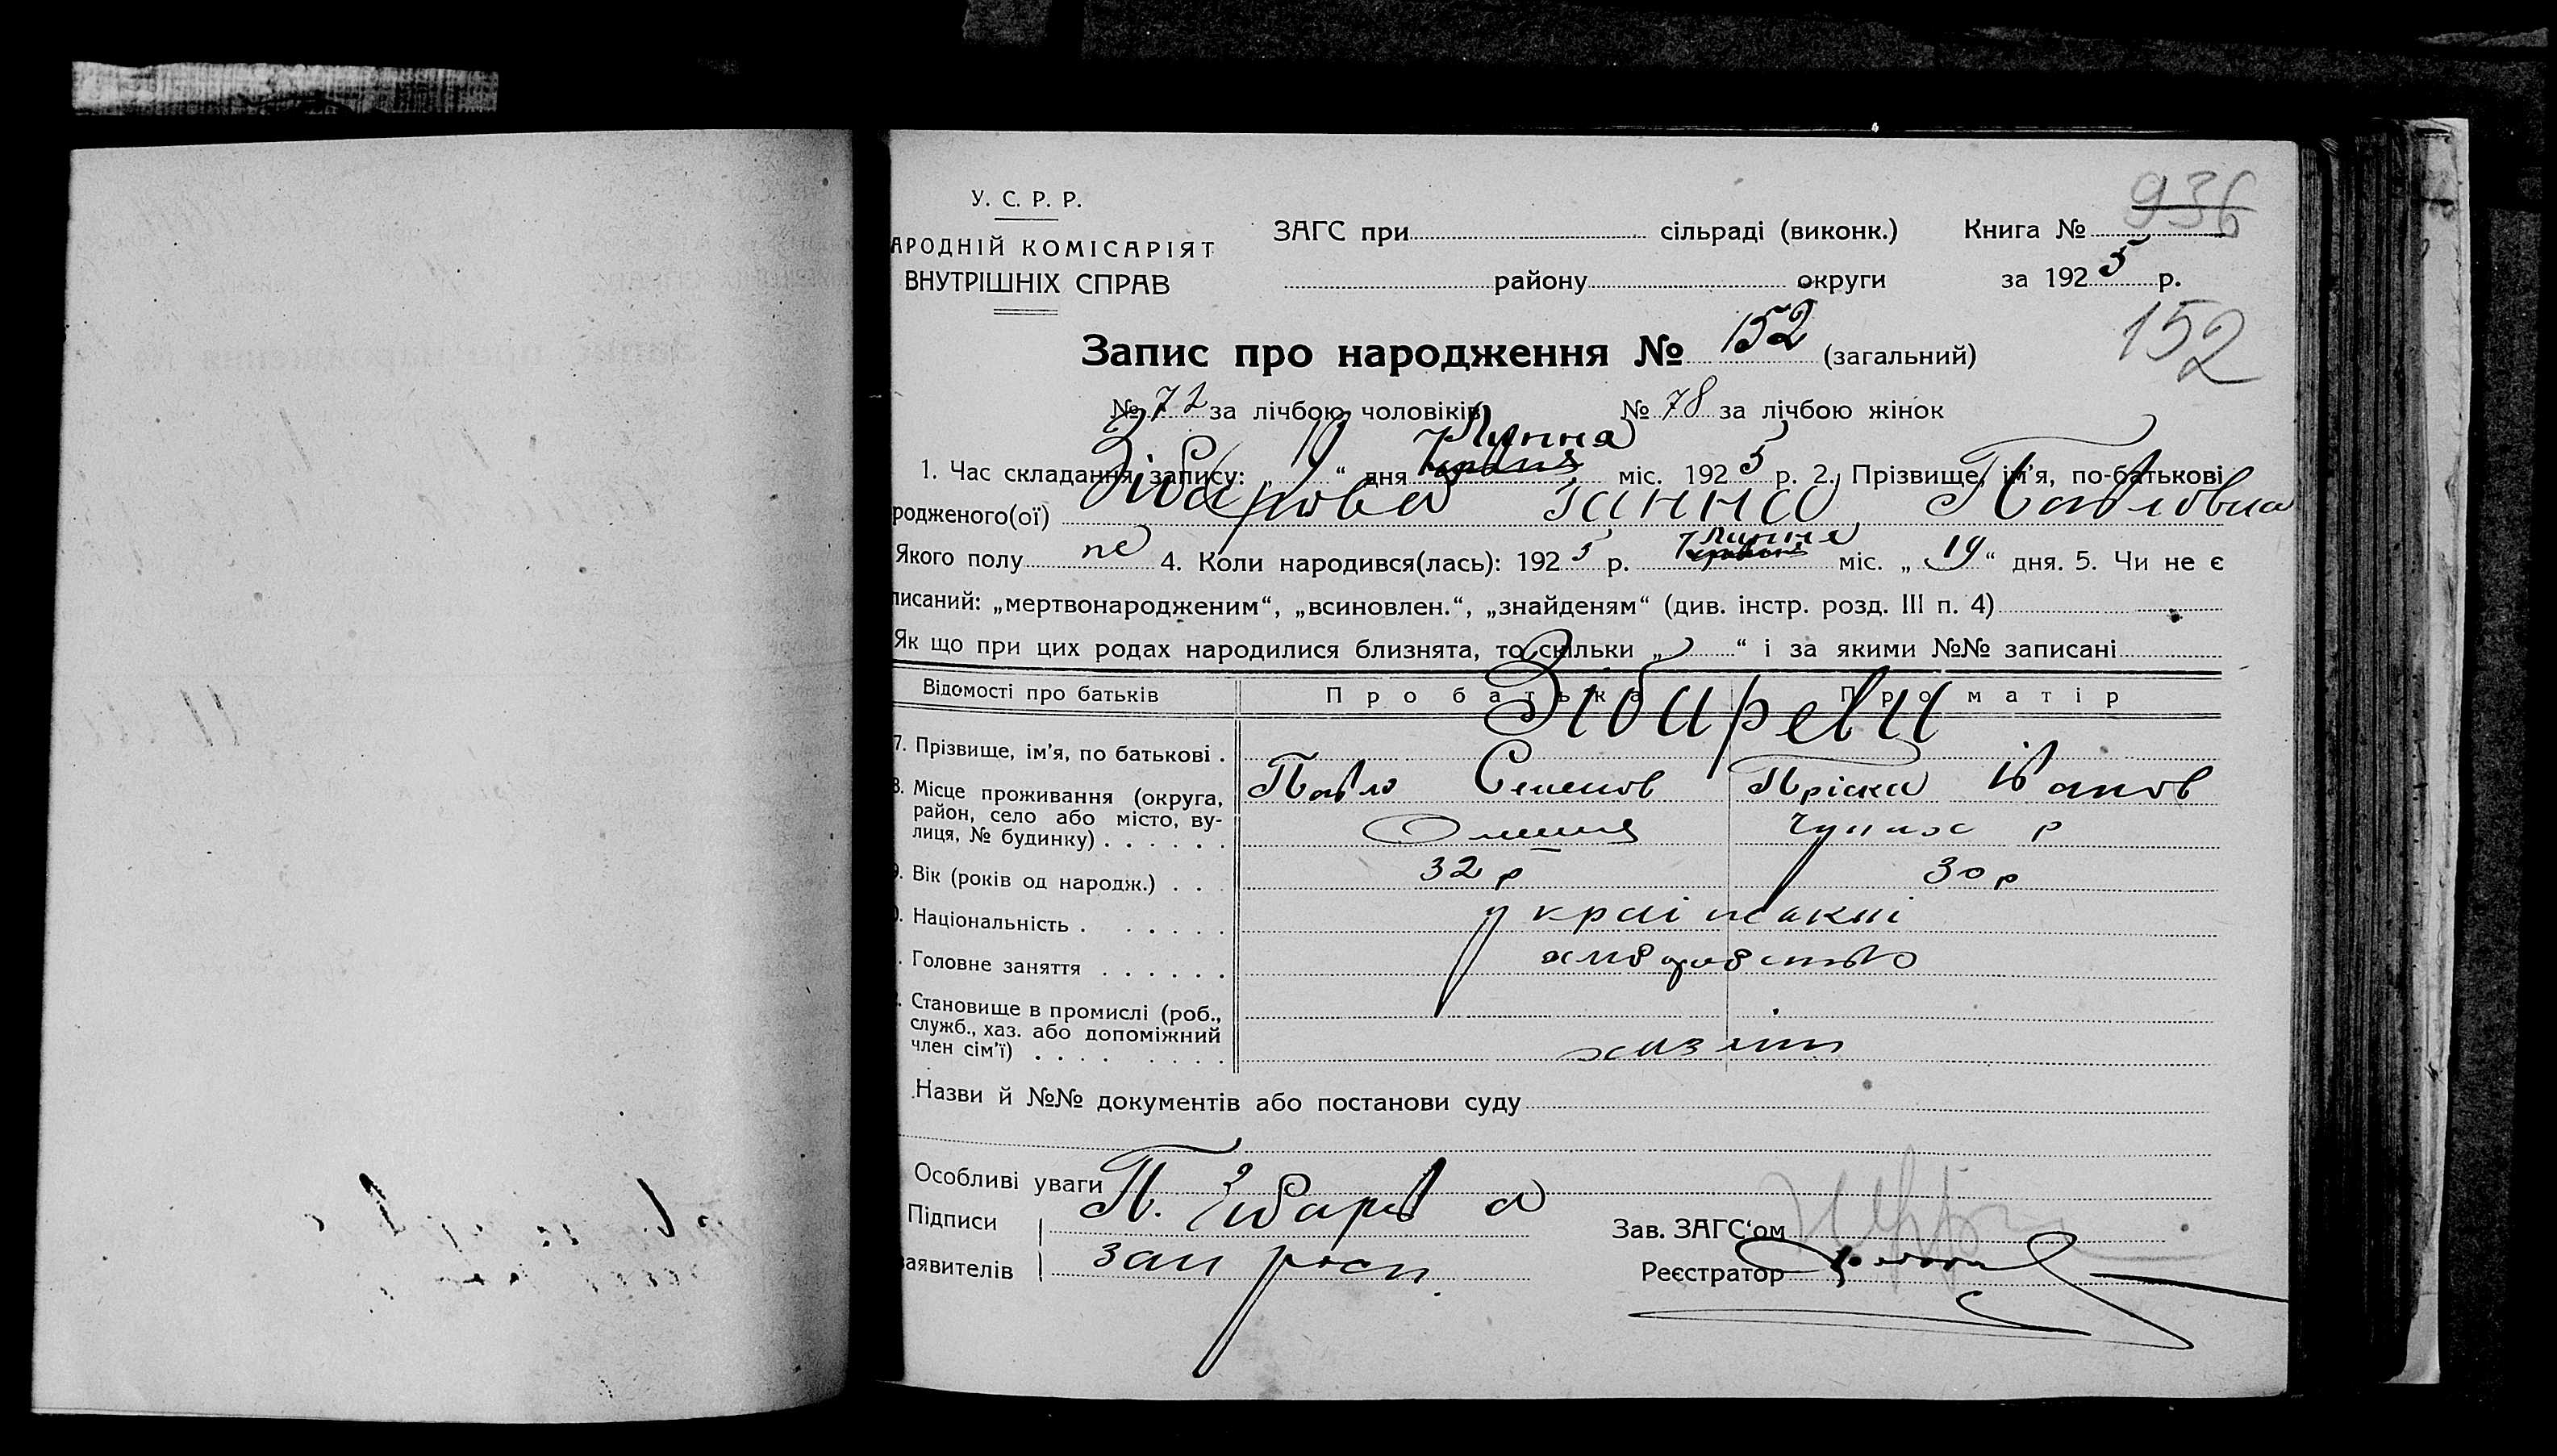 У. С. Р. Р.
АРОДНІЙ КОМІСАРІЯТ
ВНУТРІШНІХ СПРАВ
ЗАГС при сільраді (виконк.)
району округи
Книга № 936
за 1925 р.
152
Запис про народження № 152 (загальний)
№ 72 за лічбою чоловіків № 78 за лічбою жінок
Липня
1. Час складання запису: „ “ дня червня міс. 1925 р. 2. Прізвище, ім'я, по-батькові
родженого(ої) Зібарова Ганна Павловна
Липня
Якого полу 4. Коли народився(лась): 1925 р. червня міс. „19“ дня. 5. Чи не є
писаний: „мертвонародженим“, „всиновлен.“, „знайденям“ (див. інстр. розд. III п. 4)
Як що при цих родах народилися близнята, то скільки „ “ і за якими №№ записані
Відомості про батьків Про батька Про матір
Зибареви
7. Прізвище, ім'я, по батькові .
Павло Семенов Пріска Іванов
8. Місце проживання (округа,
район, село або місто, ву-
лиця, № будинку) . . . . . .
р
9. Вік (років од народж.) . . . 32 р 30 р
Національність . . . . . . українські
Головне заняття . . . . . . хліборобство
Становище в промислі (роб.,
служб., хаз. або допоміжний
член сім'ї) . . . . . . . .
Назви й №№ документів або постанови суду
Особливі уваги
Підписи П. Зибарев а
аявителів
Зав. ЗАГС'ом
Реєстратор